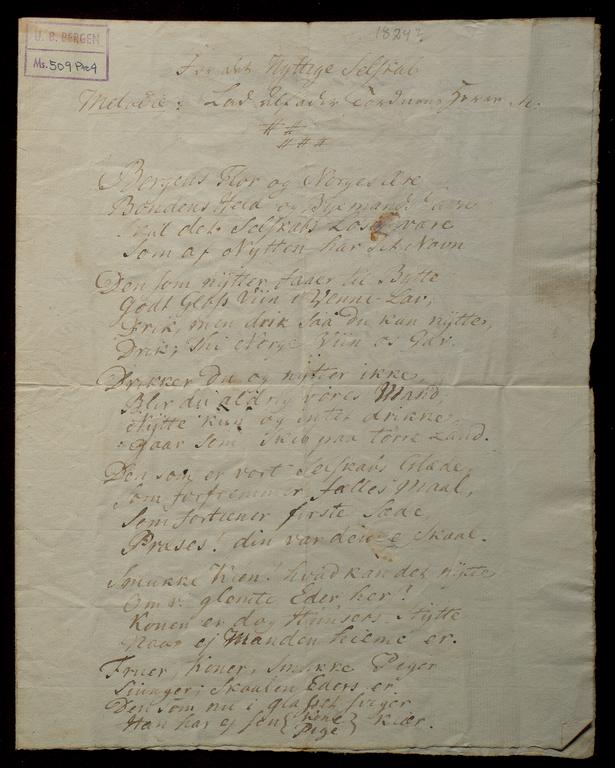 U. B. BERGEN
Ms. 509
1824?
For det Nyttige Selskab
Melodie: Lad
Bergens Flor og Norges Ære
Bondens Held og Bymands
Skal det Selskabs Løsen være
Som af Nytten har sit Navn
Den som nytter faaer til Bytte
Godt Glass Viin i Venne-Lav,
Drik, men drik saa Du kan nÿtte,
Drik, thi Norge Viin os Gav.
Drikker Du og nÿtter ikke,
Blir du aldrig vores Mand
Nÿtte kun og intet drikke,
Gaar som Skib paa tørre Land.
Den som er vort Selskabs Glæde,
Som forfremmer fælles Maal,
Som fortiener første Sæde,
Præses! din værdie e Skaal.
Smukke Kiøn! hvad kan det nÿtte
Om vi glemte Eder her!
Konen er dog Huusets Støtte
Naar ej Manden hieme er.
Fruer, Koner, Smukke Piger
Siunger; Skaalen Eders er.
Den som nu i glasset sviger
Han har ej sin { Kone Pige } Kiær.